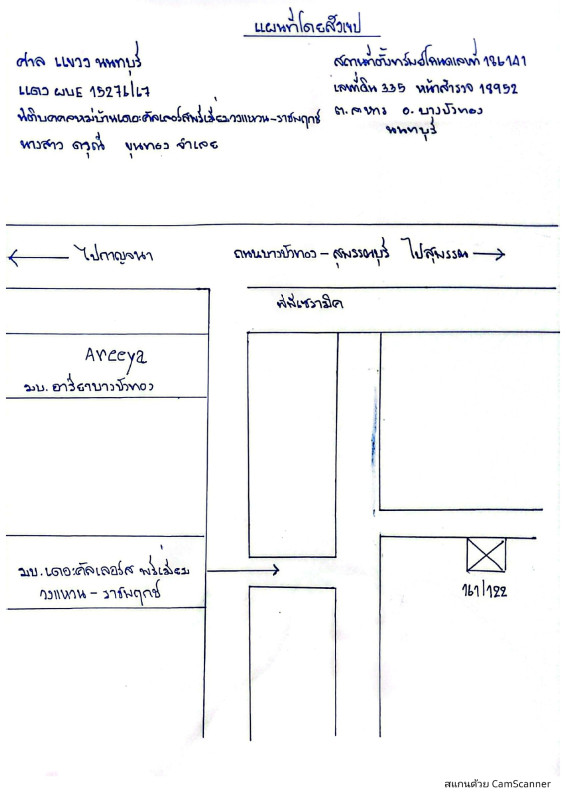 แผนที่โดยสังเขป
ศาล แขวง นนทบุรี
แดง ผบE 15276/67
นิติบุคคลหมู่บ้านเดอะคัลเลอร์สพรีเมี่ยมวงแหวน-ราชพฤกษ์
นางสาว ดรุณี ขุนทอง จำเลย
สถานที่ตั้งทรัพย์โฉนดเลขที่ 186141
เลขที่ดิน 335 หน้าสำรวจ 18952
ต.ละหาร อ.บางบัวทอง
นนทบุรี
ไปกาญจนา
ถนนบางบัวทอง - สุพรรณบุรี ไปสุพรรณ
พีพีเซรามิค
Areeya
มบ. อารียาบางบัวทอง
มบ. เดอะคัลเลอร์ส พรีเมี่ยม
วงแหวน - ราชพฤกษ์
161/122
สแกนด้วย CamScanner